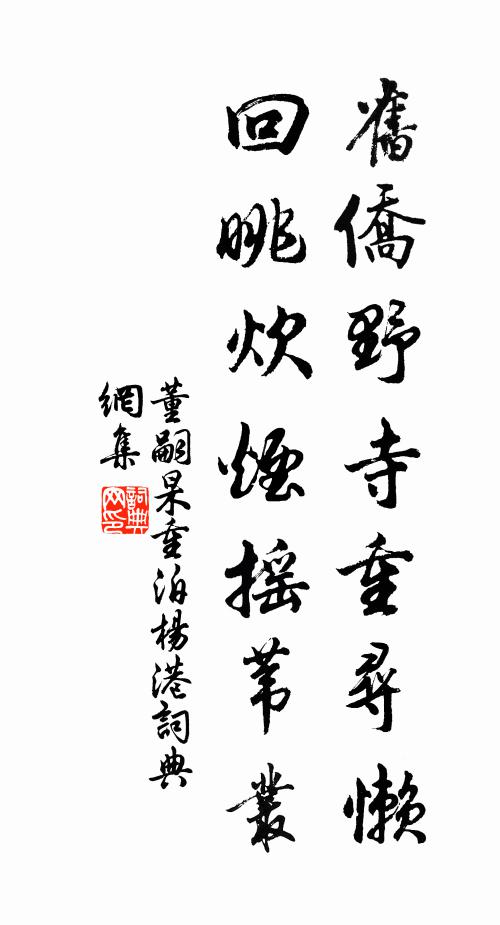 舊僑野寺重尋懶
回眺炊煙摇苇叢
董嗣杲重泊楊港詞典
網集
詞典
网印